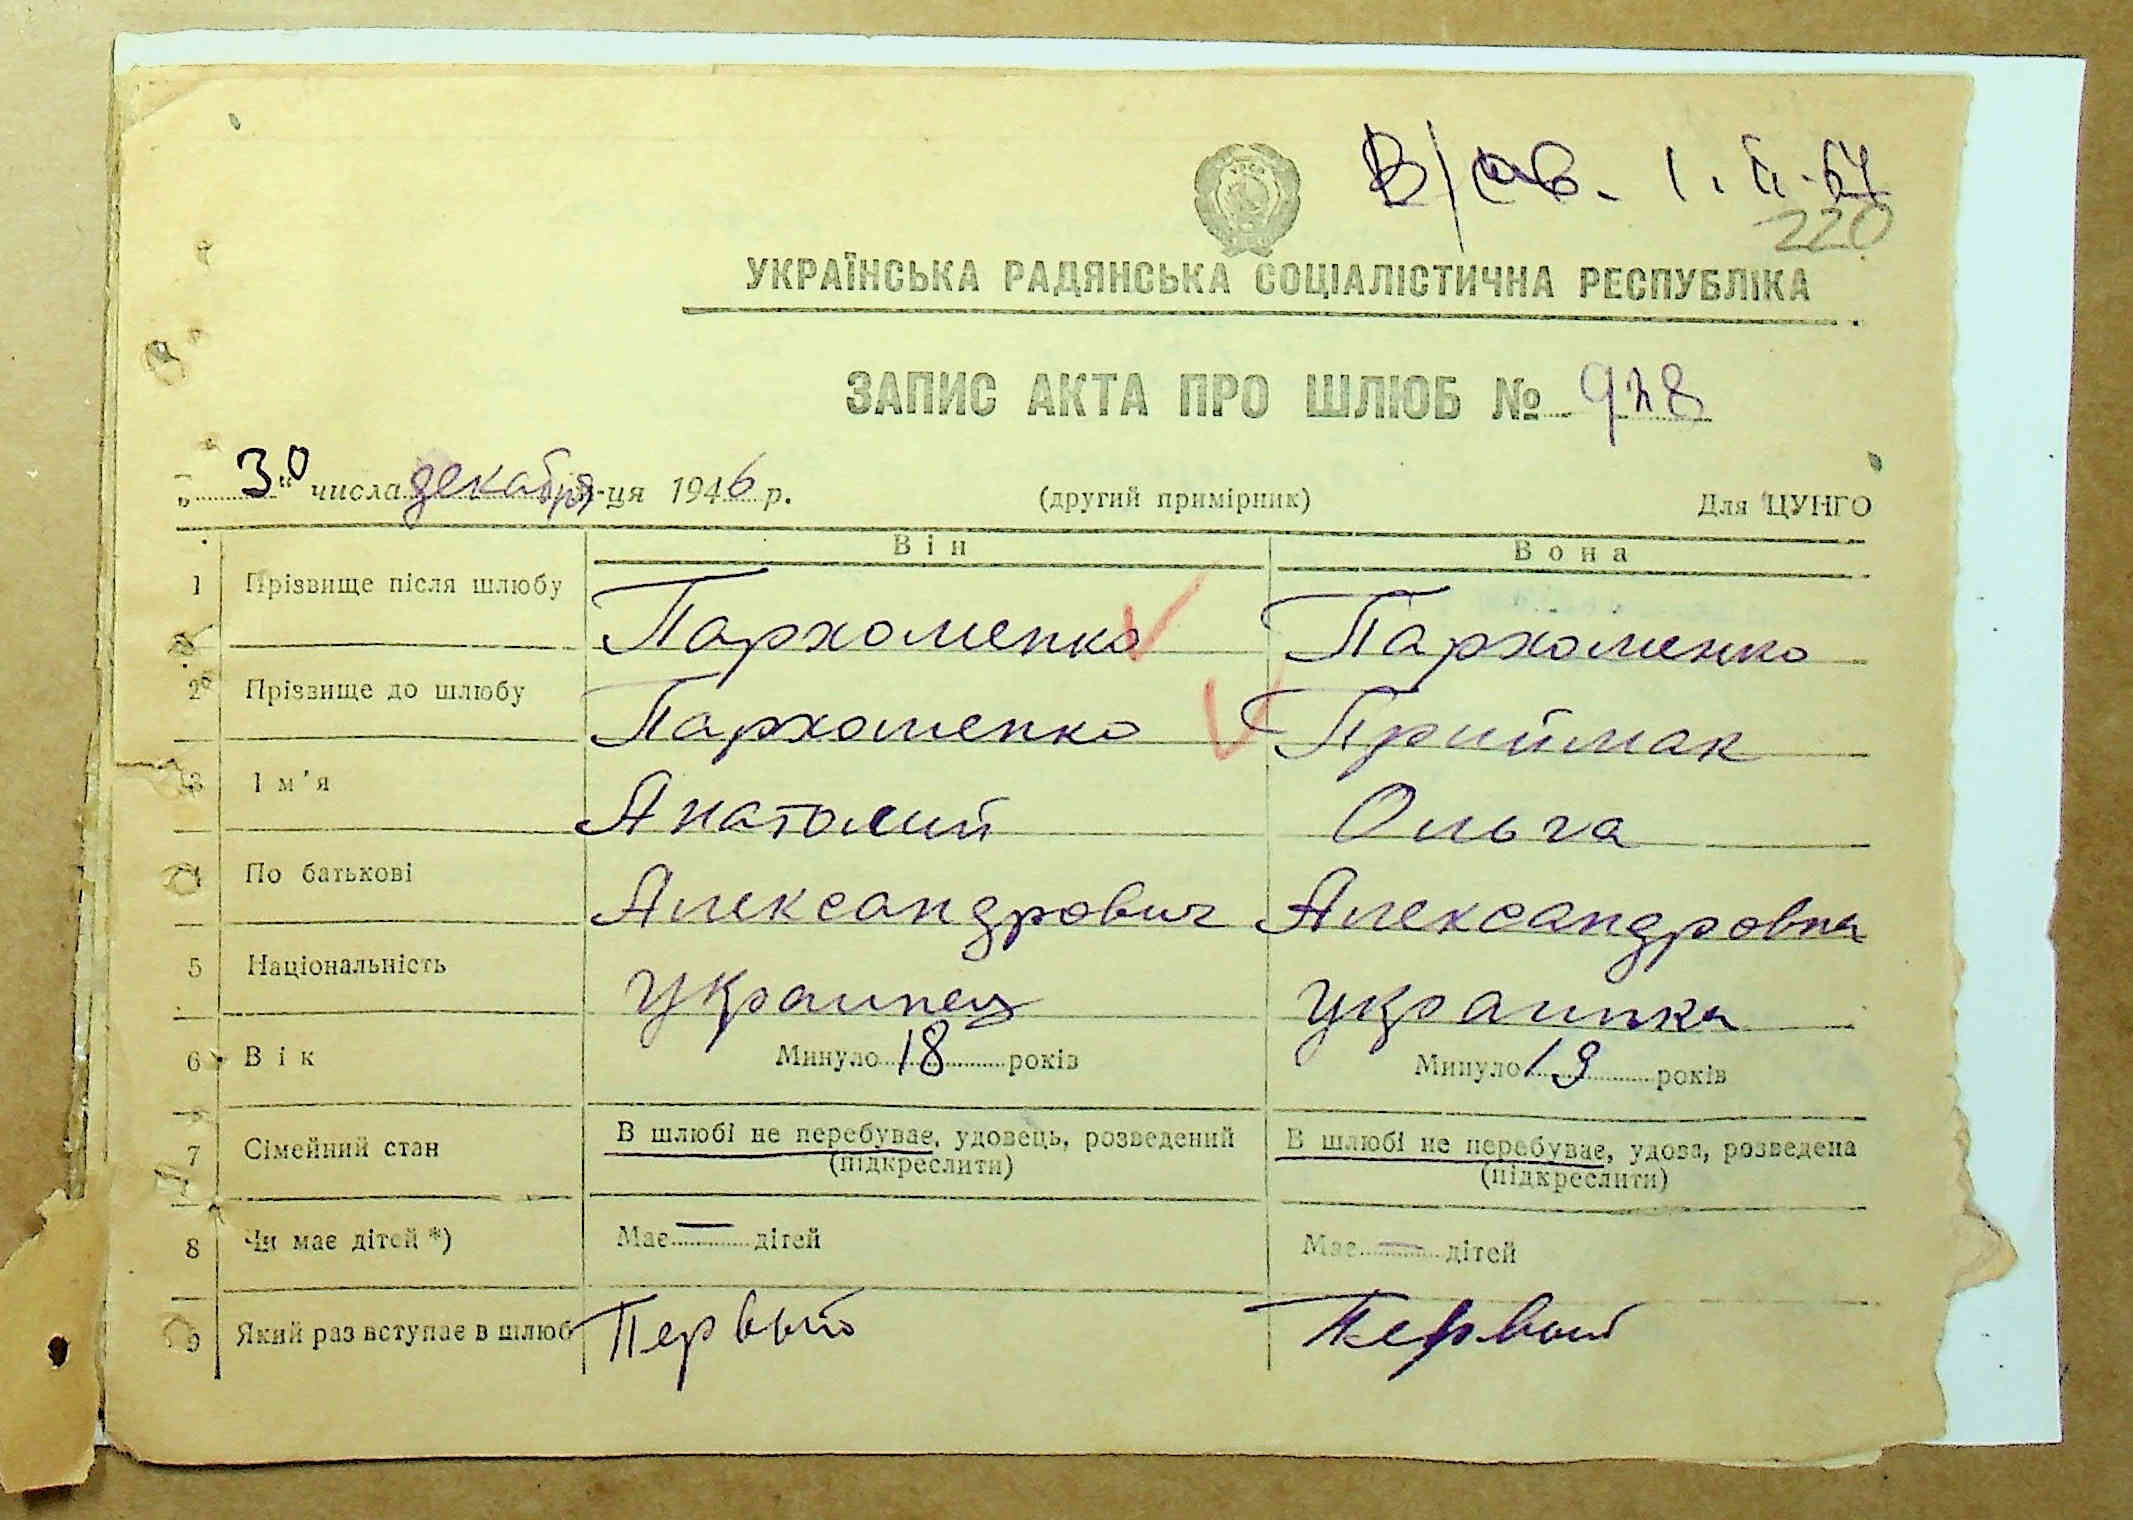 В/св. 1. II. 67
220
УКРАЇНСЬКА РАДЯНСЬКА СОЦІАЛІСТИЧНА РЕСПУБЛІКА
ЗАПИС АКТА ПРО ШЛЮБ № 928
„30" числа декабря м-ця 1946 р. (другий примірник) Для ЦУНГО
Він Вона
1 Прізвище після шлюбу Пархоменко Пархоменко
2 Прізвище до шлюбу Пархоменко Приймак
3 Ім'я Анатолий Ольга
4 По батькові Александрович Александровна
5 Національність Украинец Украинка
6 Вік Минуло 18 років Минуло 19 років
7 Сімейний стан В шлюбі не перебуває, удовець, розведений В шлюбі не перебуває, удова, розведена
(підкреслити) (підкреслити)
8 Чи має дітей *) Має — дітей Має — дітей
9 Який раз вступає в шлюб Первый Первый